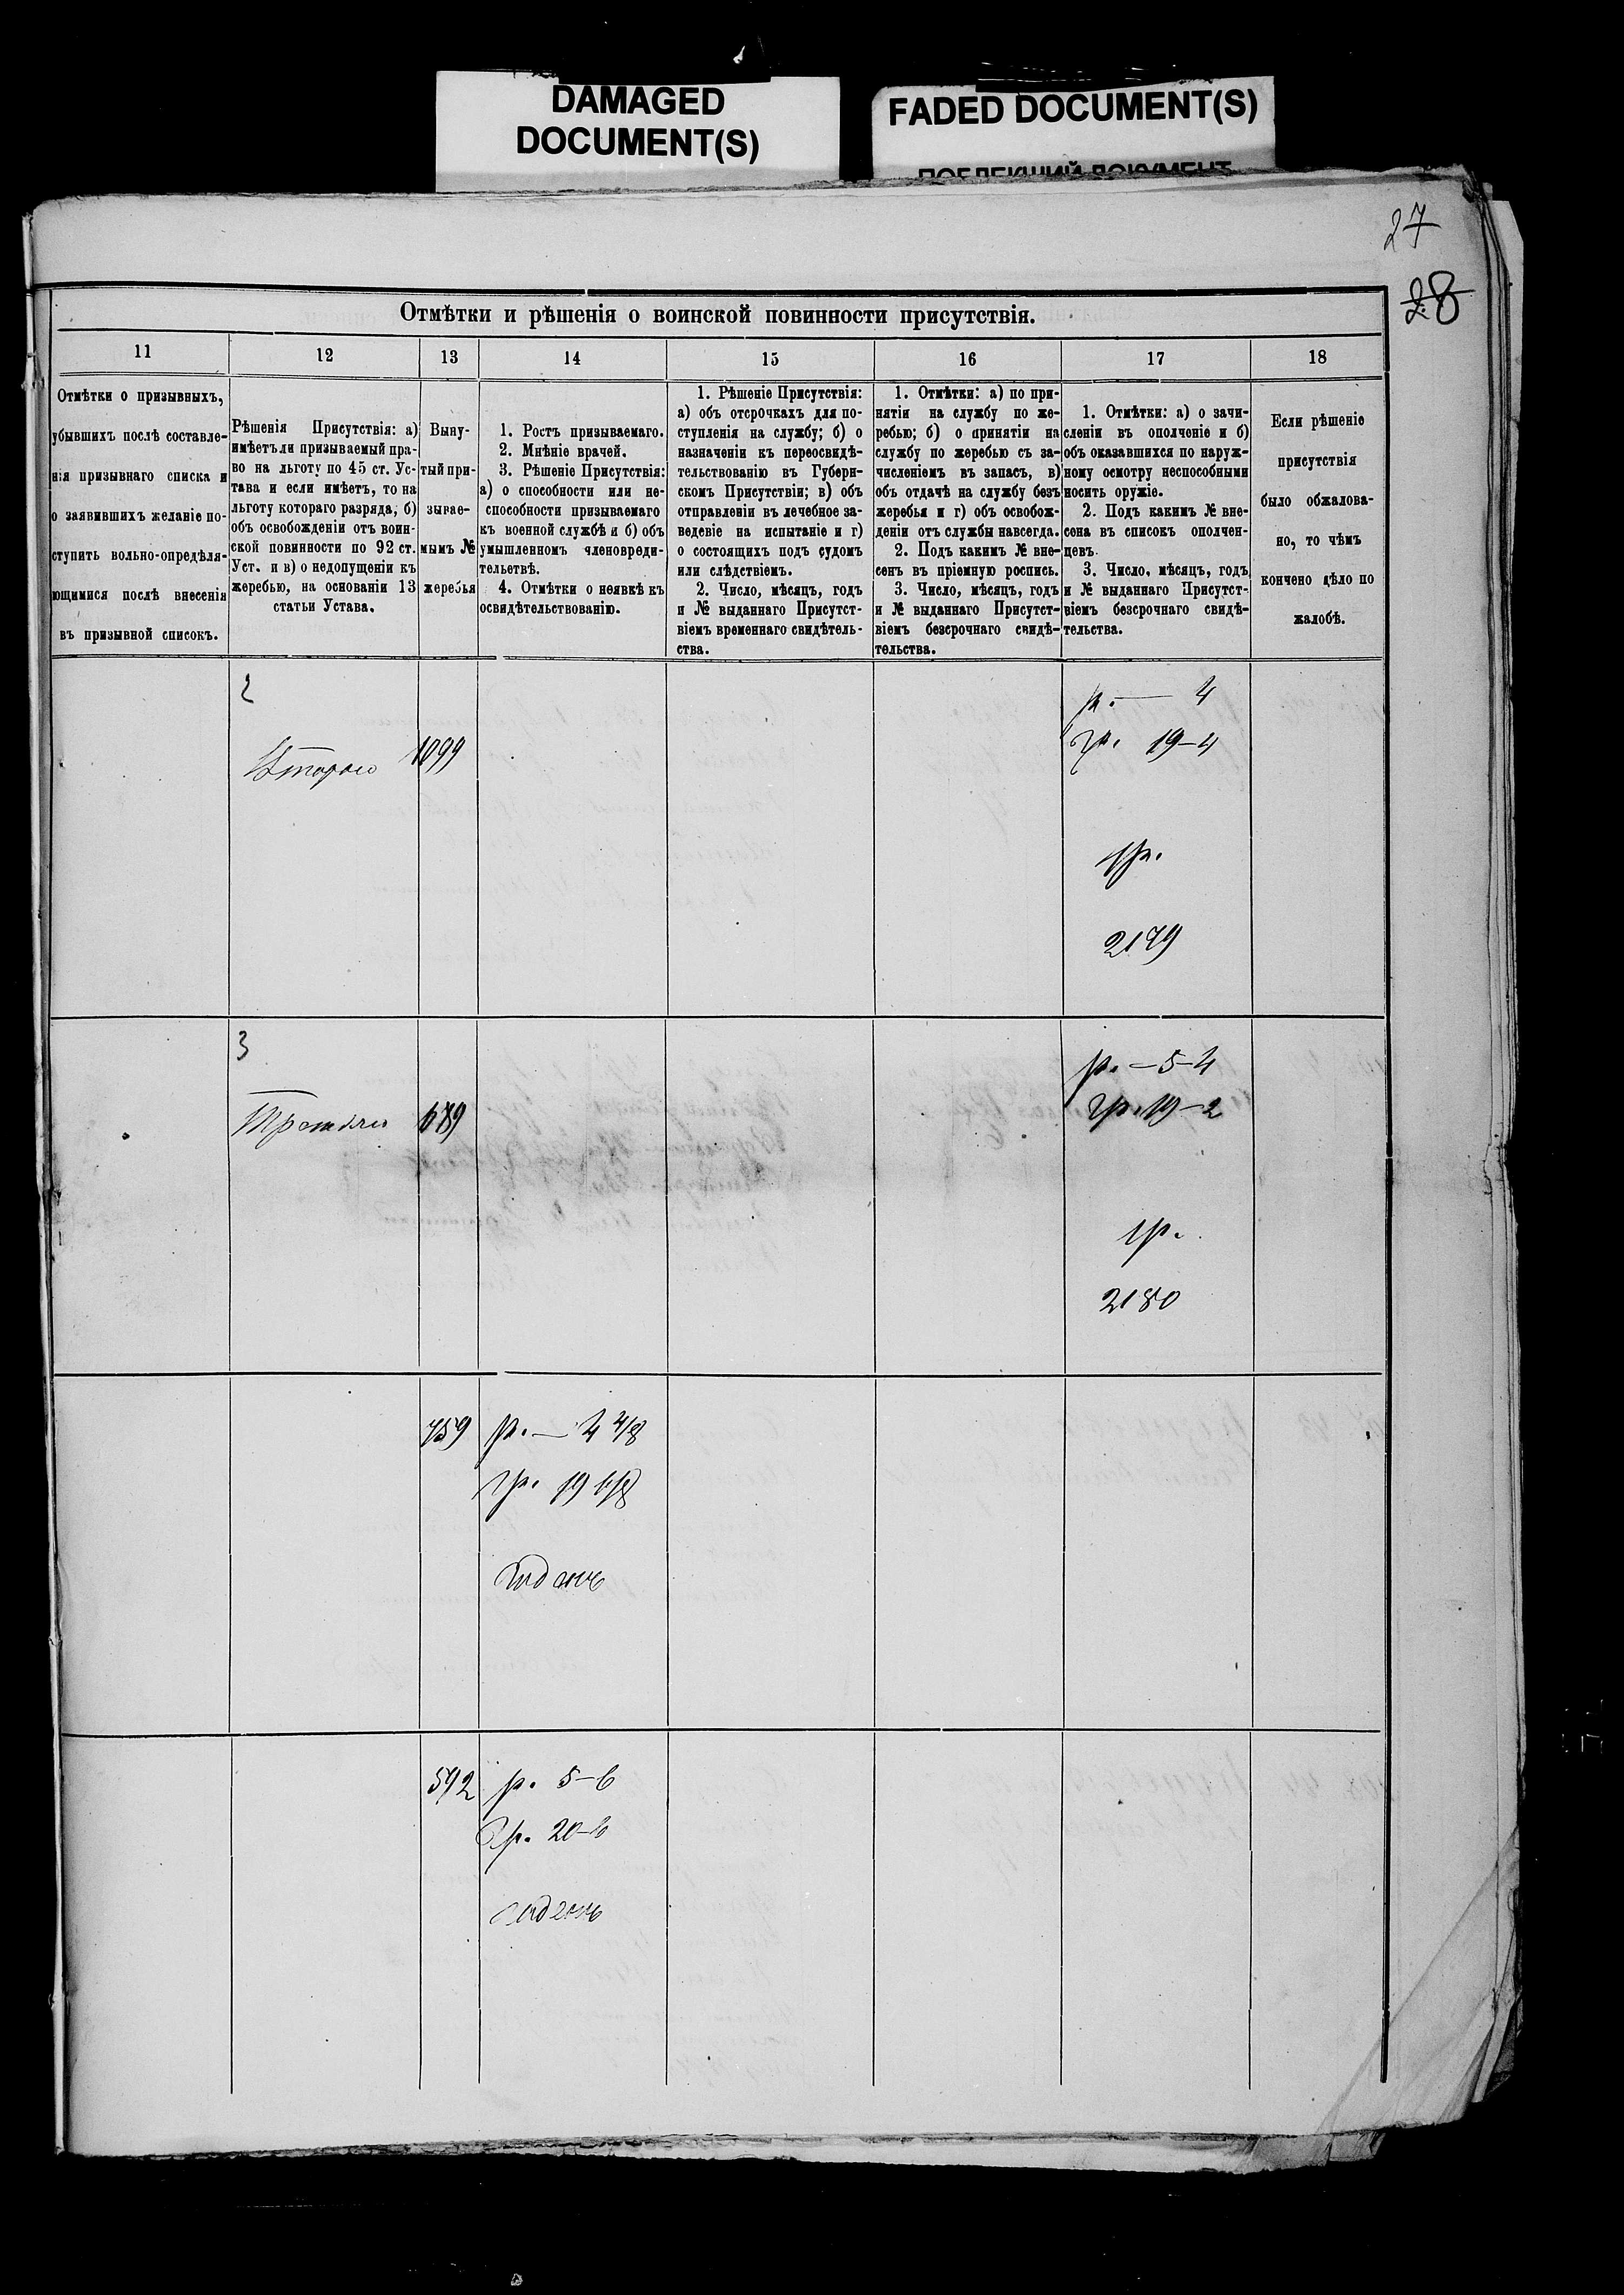 DAMAGED
DOCUMENT(S)
FADED DOCUMENT(S)
ПОБЛЕКШИЙ ДОКУМЕНТ
27
28
Отмѣтки и рѣшенія о воинской повинности присутствія.
11
Отмѣтки о призывныхъ,
убывшихъ послѣ составле-
нія призывнаго списка и
о заявившихъ желаніе по-
ступить вольно-опредѣля-
ющимися послѣ внесенія
въ призывной списокъ.
12
Рѣшенія Присутствія: а)
имѣетъ ли призываемый пра-
во на льготу по 45 ст. Ус-
тава и если имѣетъ, то на
льготу котораго разряда, б)
объ освобожденіи отъ воин-
ской повинности по 92 ст.
Уст. и в) о недопущеніи къ
жеребью, на основаніи 13
статьи Устава.
13
Выну-
тый при-
зывае-
мымъ №
жеребья
14
1. Ростъ призываемаго.
2. Мнѣніе врачей.
3. Рѣшеніе Присутствія:
а) о способности или не-
способности призываемаго
къ военной службѣ и б) объ
умышленномъ членовреди-
тельствѣ.
4. Отмѣтки о неявкѣ къ
освидѣтельствованію.
15
1. Рѣшеніе Присутствія:
а) объ отсрочкахъ для по-
ступленія на службу; б) о
назначеніи къ переосвидѣ-
тельствованію въ Губерн-
скомъ Присутствіи; в) объ
отправленіи въ лечебное за-
веденіе на испытаніе и г)
о состоящихъ подъ судомъ
или слѣдствіемъ.
2. Число, мѣсяцъ, годъ
и № выданнаго Присутст-
віемъ временнаго свидѣтель-
ства.
16
1. Отмѣтки: а) по при-
нятіи на службу по же-
ребью; б) о принятіи на
службу по жеребью съ за-
численіемъ въ запасъ, в)
объ отдачѣ на службу безъ
жеребья и г) объ освобож-
деніи отъ службы навсегда.
2. Подъ какимъ № вне-
сенъ въ пріемную роспись.
3. Число, мѣсяцъ, годъ
и № выданнаго Присутст-
віемъ безсрочнаго свидѣ-
тельства.
17
1. Отмѣтки: а) о зачи-
сленіи въ ополченіе и б)
объ оказавшихся по наруж-
ному осмотру неспособными
носить оружіе.
2. Подъ какимъ № вне-
сена въ списокъ ополчен-
цевъ.
3. Число, мѣсяцъ, годъ
и № выданнаго Присутст-
віемъ безсрочнаго свидѣ-
тельства.
18
Если рѣшеніе
присутствія
было обжалова-
но, то чѣмъ
кончено дѣло по
жалобѣ.
2
Втораго
1099
р. — 4
гр. 19-4
2179
3
Третьяго
689
р. — 5-4
гр. 19-2
2180
759
р. — 4 4/8
гр. 19 6/8
Годенъ
592
р. 5-6
гр. 20-6
Годенъ